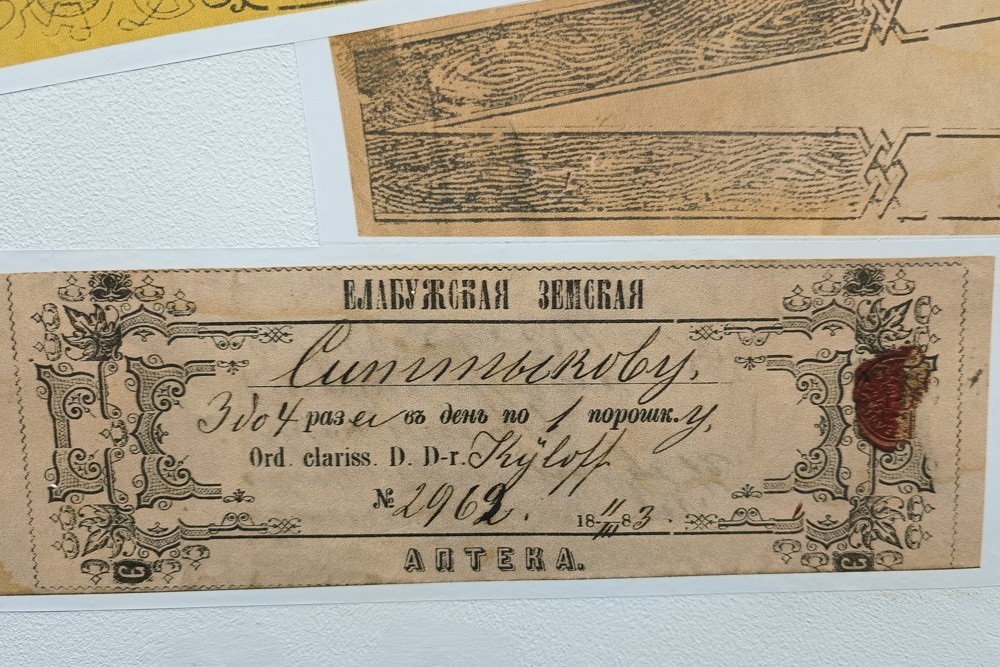 ЕЛАБУЖСКАЯ ЗЕМСКАЯ
Ситтыкову.
3 до 4 раза въ день по 1 порошк.у.
Ord. clariss. D. D-r. Kÿloff
№ 2962.
18 11/III 83.
АПТЕКА.